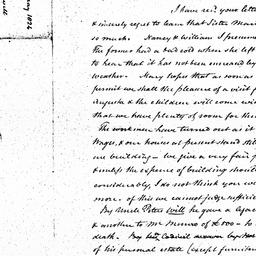 I have rec.d your letter
& sincerely regret to learn that Sister Maria
so much. Nancy & William I presume
the former had a bad cold when she left
to hear that it has not been increased by
weather. Mary hopes that as soon as
permit we shall the pleasure of a visit f
Augusta & the children will come wi
that we have plenty of room for the
The workmen have turned out as it
Wages, & our house at present stand still
we building — we give a very fair p
& unless the expence of building shoul
considerably, I do not think you we
more. of this we cannot judge suffici
By Uncle Peter's Will he gave a lega
& another to Mr Munro of £500 — to
death. By
of his personal estate (except furnitur